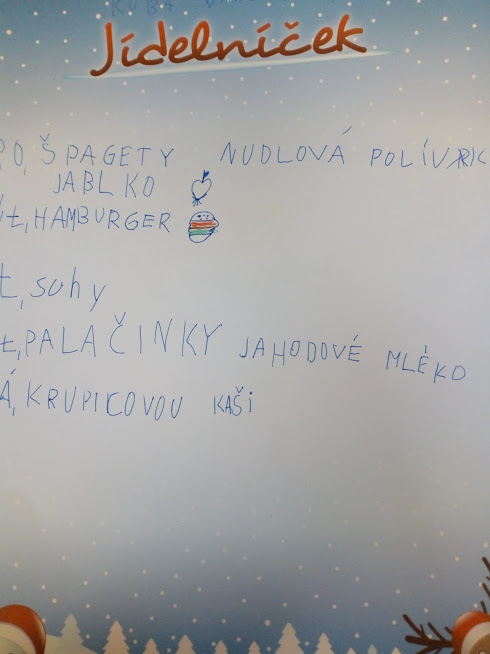 Jídelníček
PO, ŠPAGETY NUDLOVÁ
JABLKO
ÚT, HAMBURGER
T, suhy
T, PALAČINKY JAHODOVÉ MLÉKO
Á, KRUPICOVOU KAŠI